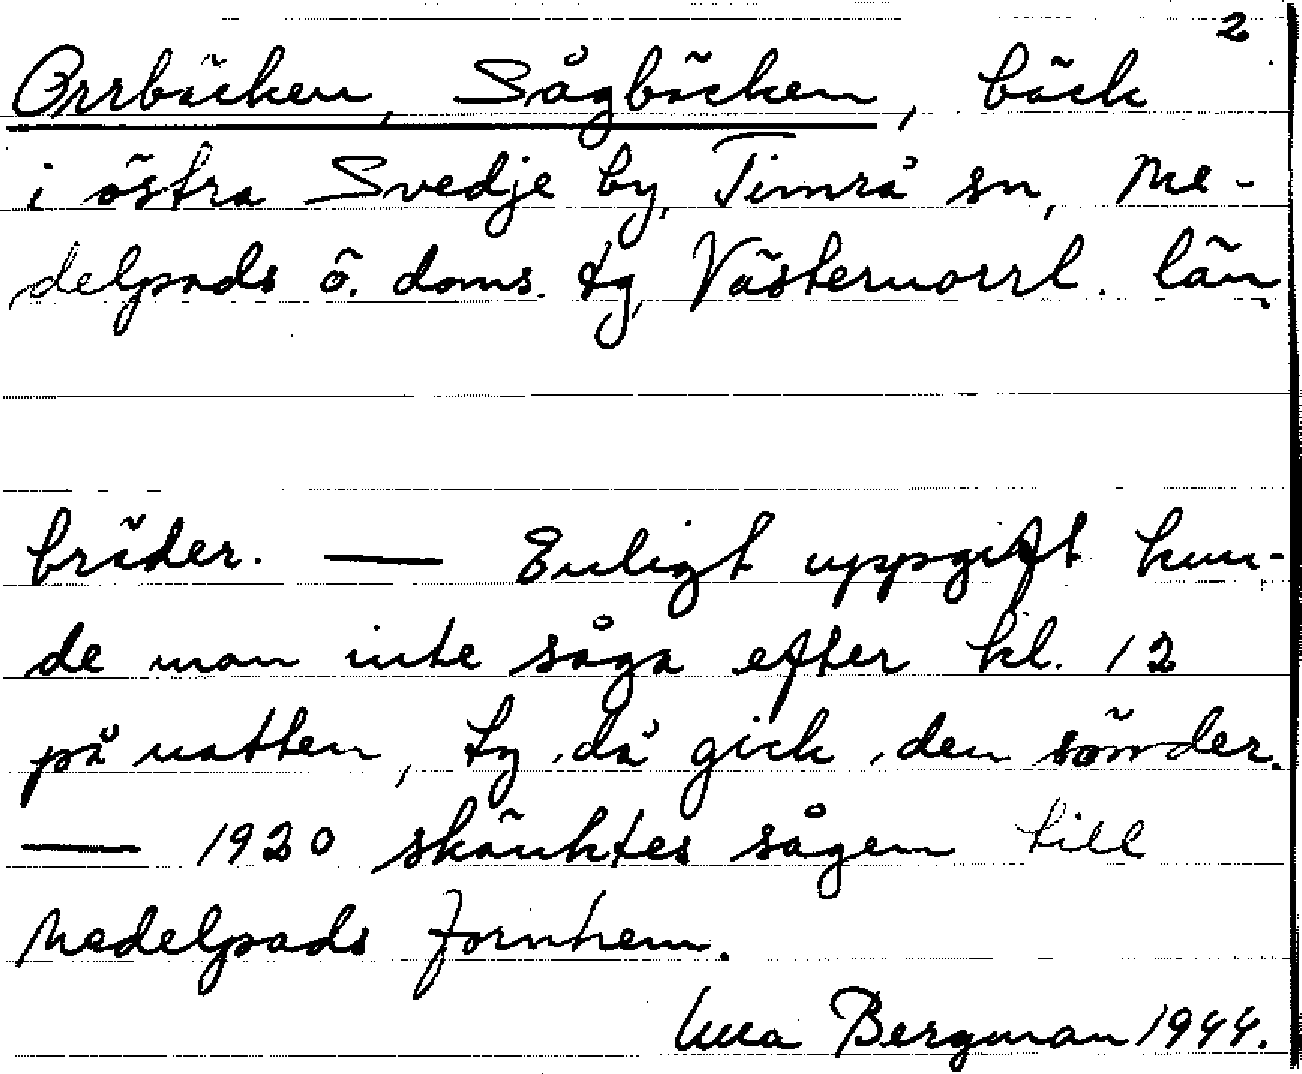 2
Orrbäcken, Sågbäcken, bäck
i östra Svedje by, Timrå sn, Me-
delpads ö. doms. tg, Västernorrl. län.
bräder. — Enligt uppgift kun-
de man inte såga efter kl. 12
på natten, ty då gick den sönder.
— 1920 skänktes sågen till
Medelpads fornhem.
Bergman 1944.